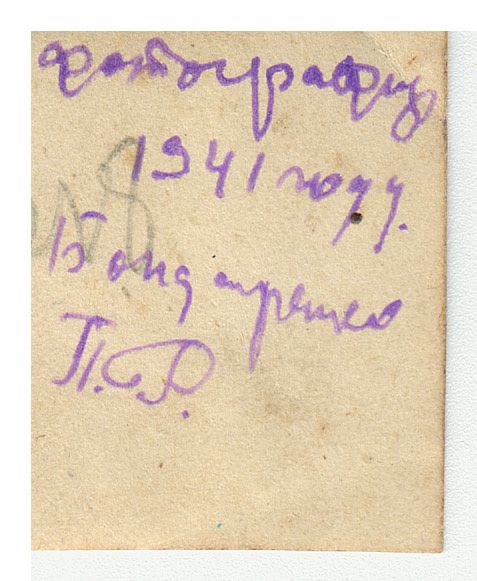 фотографир
1941 году.
Бондаренко
П.Р.